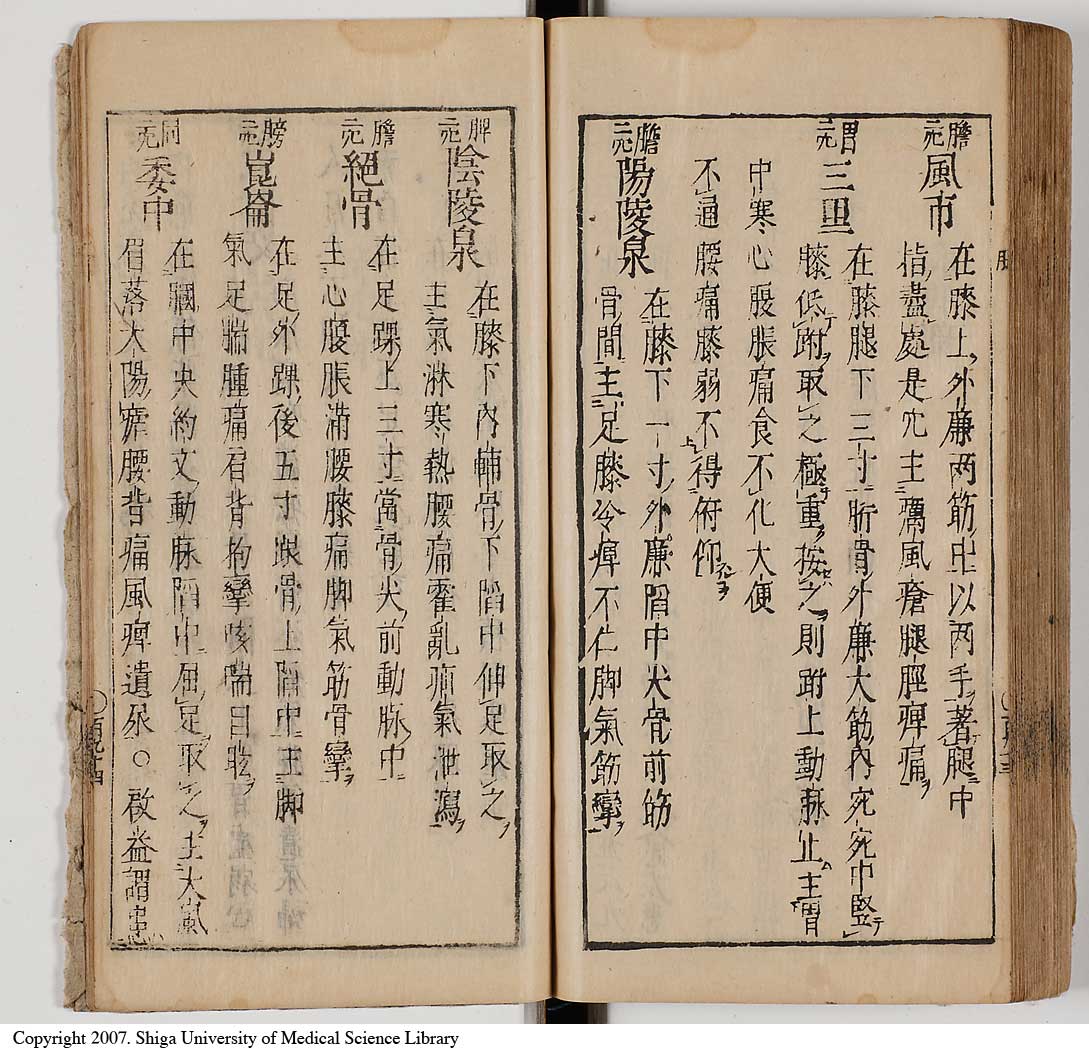 膽二穴
風市
在膝上外廉两筋中以两手著腿中
指盡處是穴主癘風瘡腿脛痺痛
胃二穴
三里
在膝腿下三寸䯒骨外廉大筋內宛宛中竪
膝低跗取之極重按之則跗上動脉止主胃
中寒心腹脹痛食不化大便
不通腰痛膝弱不得俯仰
膽二穴
陽陵泉
在膝下一寸外廉陷中尖骨前筋
骨間主足膝冷痺不仁脚氣筋攣
脾二穴
陰陵泉
在膝下內輔骨下陷中伸足取之
主氣淋寒熱腰痛霍亂疝氣泄瀉
膽二穴
絕骨
在足踝上三寸常骨尖前動脉中
主心腹脹滿腰膝痛脚氣筋骨攣
膀二穴
崑崙
在足外踝後五寸跟骨上陷中主脚
氣足腨腫痛肩背拘攣咳喘目眩
同二穴
委中
在膕中央約文動脉陷中屈足取之主大風
眉落太陽瘧腰背痛風痺遺尿〇啟益謂
Copyright 2007. Shiga University of Medical Science Library